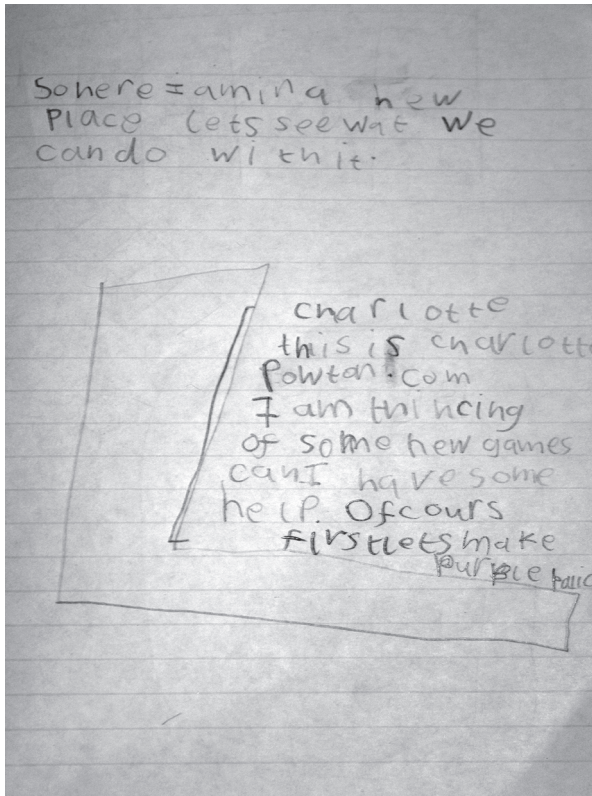 So here I am in a new
Place lets see wat we
can do with it.
charlotte
this is charlotte
Powton.com
I am thincing
of some new games
can I have some
help. Of cours
first lets make
purple